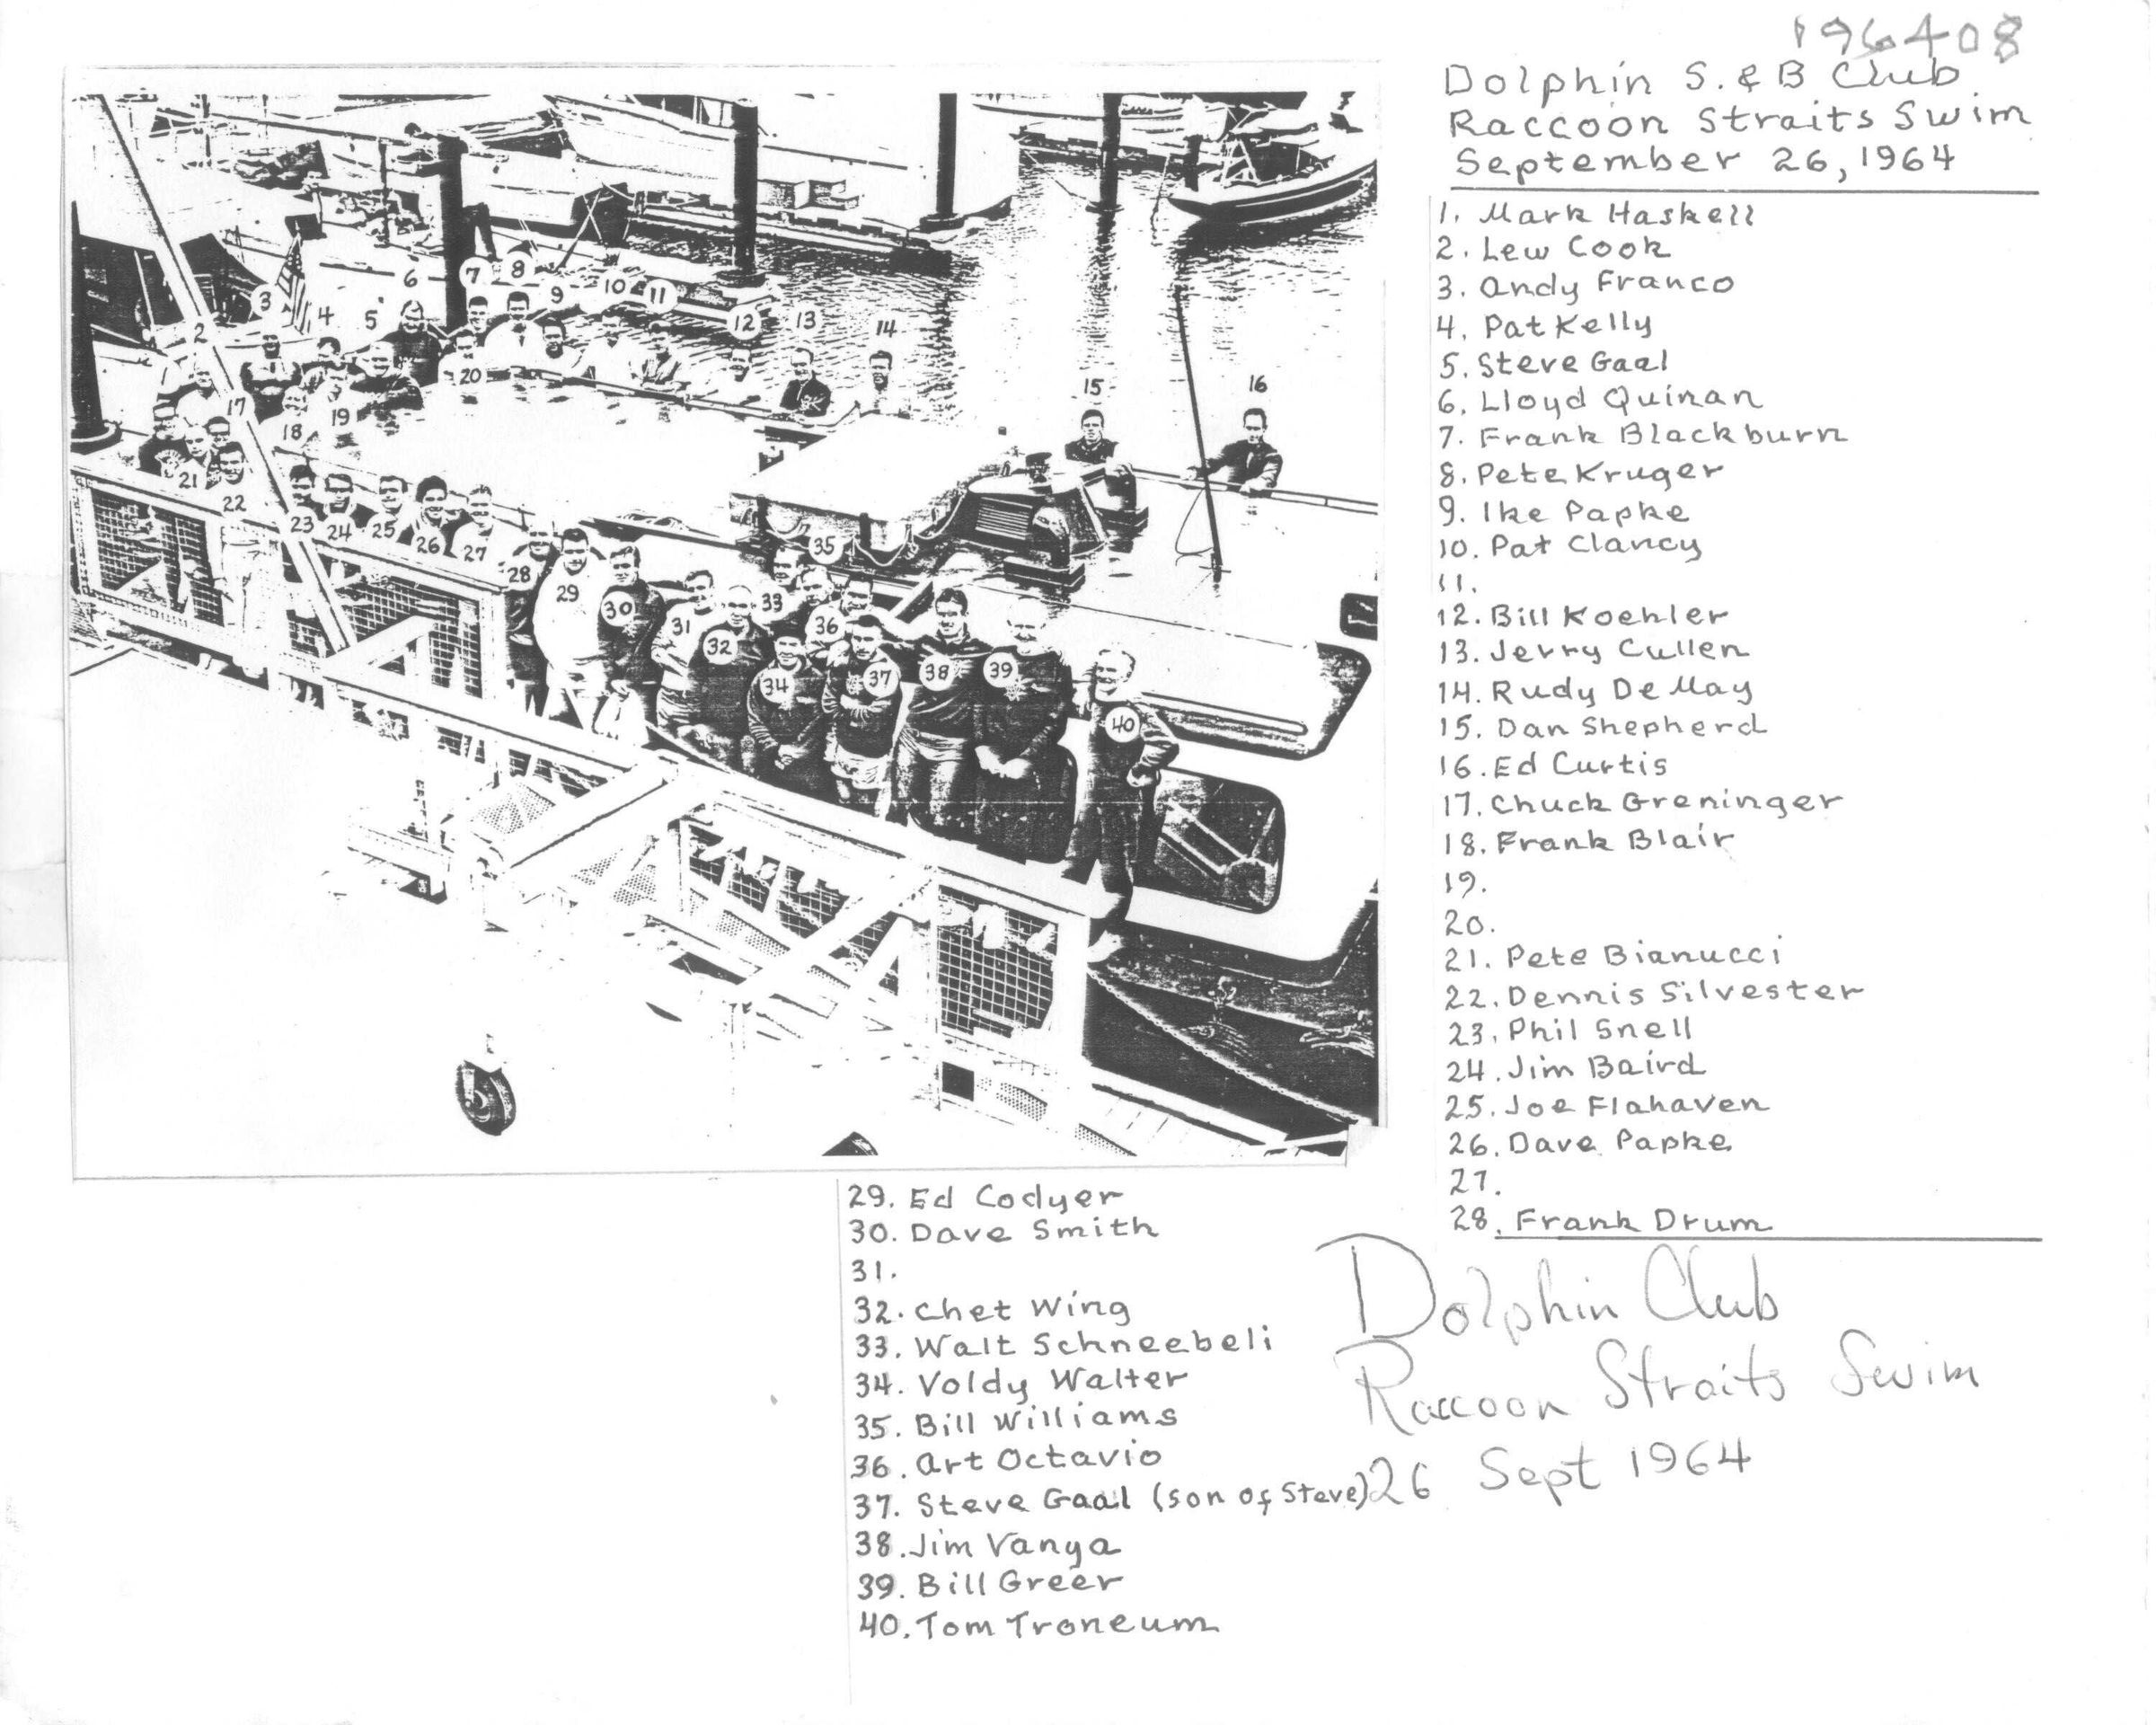 196408
Dolphin S. & B Club
Raccoon Straits Swim
September 26, 1964
1. Mark Haskell
2. Lew Cook
3. Andy Franco
4. Pat Kelly
5. Steve Gaal
6. Lloyd Quinan
7. Frank Blackburn
8. Pete Kruger
9. Ike Papke
10. Pat Clancy
11.
12. Bill Koehler
13. Jerry Cullen
14. Rudy De May
15. Dan Shepherd
16. Ed Curtis
17. Chuck Greninger
18. Frank Blair
19.
20.
21. Pete Bianucci
22. Dennis Silvester
23. Phil Snell
24. Jim Baird
25. Joe Flahaven
26. Dave Papke
27.
28. Frank Drum
29. Ed Codyer
30. Dave Smith
31.
32. Chet Wing
33. Walt Schneebeli
34. Voldy Walter
35. Bill Williams
36. Art Octavio
37. Steve Gaal (son of Steve)
38. Jim Vanya
39. Bill Greer
40. Tom Troneum
Dolphin Club
Raccoon Straits Swim
26 Sept 1964
2
3
4
5
6
7
8
9
10
11
12
13
14
15
16
17
18
19
20
21
22
23
24
25
26
27
28
29
30
31
32
33
34
35
36
37
38
39
40